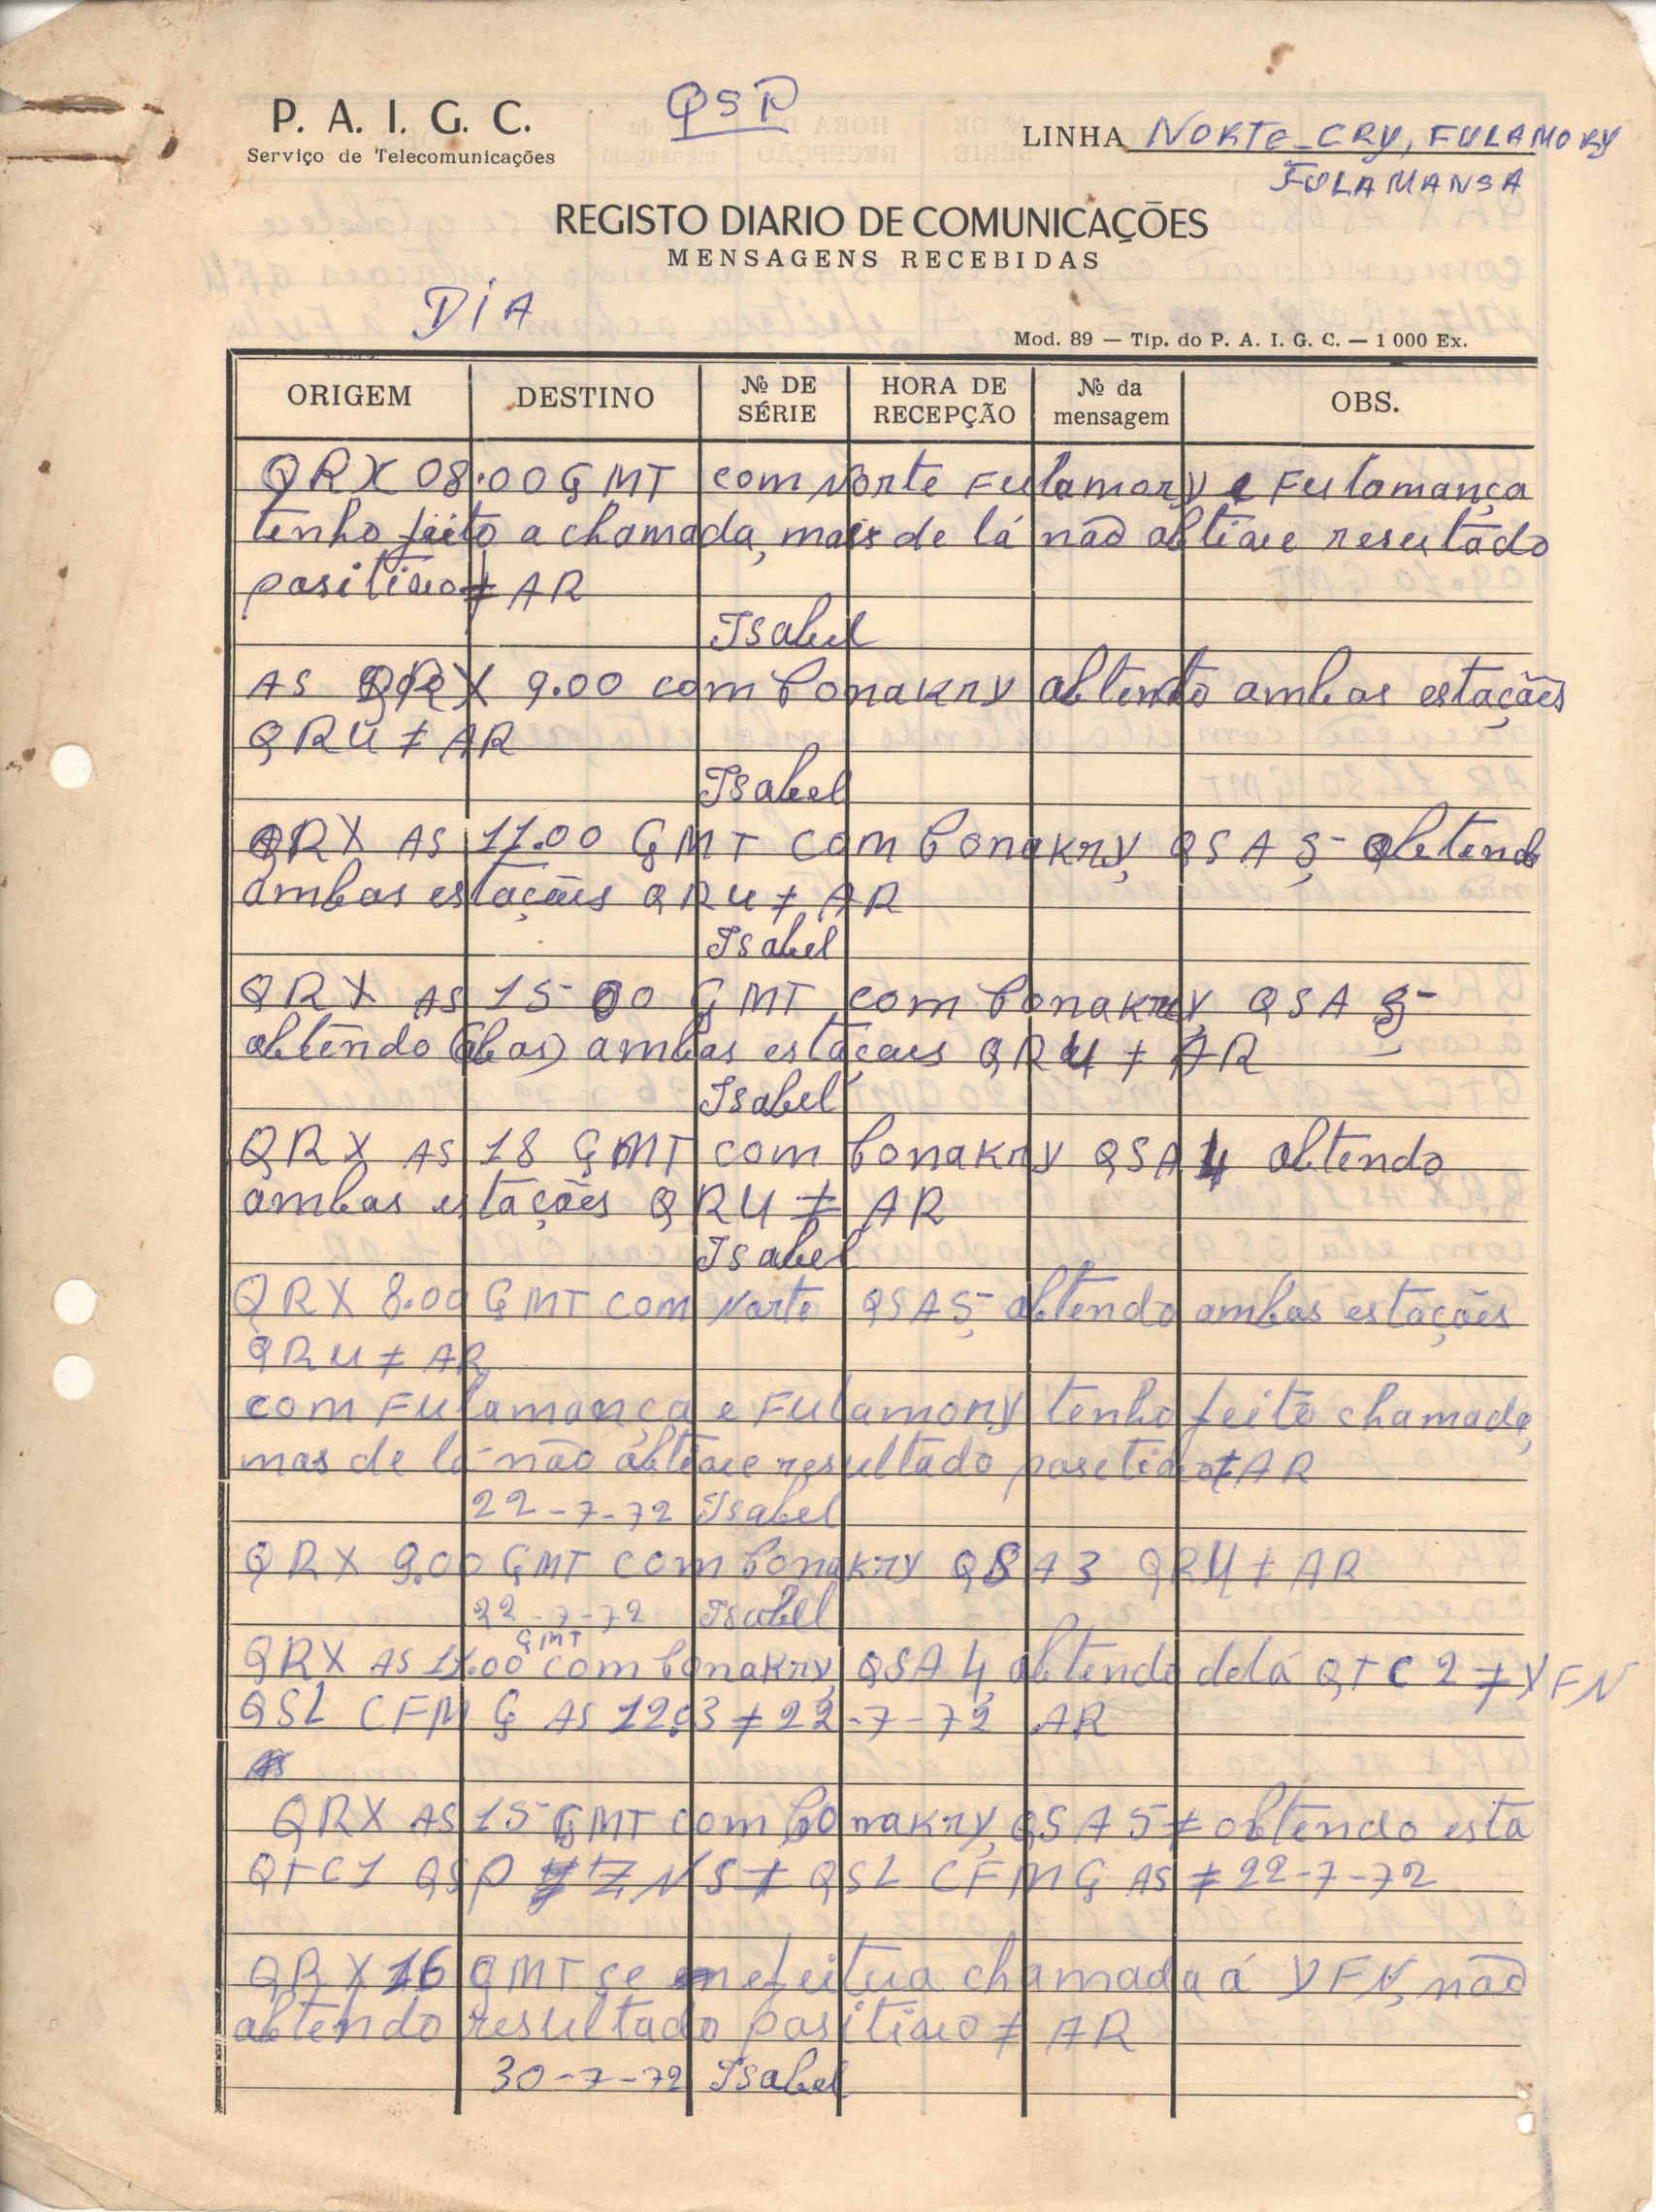 P. A. I. G. C.
Serviço de Telecomunicações
QSP
LINHA NORTE-CRY, FULAMORY
FULAMANSA
REGISTO DIARIO DE COMUNICAÇÕES
MENSAGENS RECEBIDAS
DIA
Mod. 89 — Tip. do P. A. I. G. C. — 1 000 Ex.
ORIGEM DESTINO № DE SÉRIE HORA DE RECEPÇÃO № da mensagem OBS.
QRX 08.00 GMT com Norte Fulamory e Fulamança
tenho feito a chamada, mais de lá não obtive resultado
positivo ≠ AR
Isabel
AS QRX 9.00 com Conakry obtendo ambas estações
QRU ≠ AR
Isabel
QRX AS 11.00 GMT com Conakry, QSA 5 obtendo
ambas estações QRU ≠ AR
Isabel
QRX AS 15 00 GMT com Conakry QSA 5
obtendo (abas) ambas estaçaes QRU ≠ AR
Isabel
QRX AS 18 GMT com Conakry QSA 4 obtendo
ambas estações QRU ≠ AR
Isabel
QRX 8.00 GMT com Norte QSA 5 obtendo ambas estações
QRU ≠ AR
com Fulamança e Fulamory tenho feito chamada,
mas de lá não obtive resultado positivo ≠ AR
22-7-72 Isabel
QRX 9.00 GMT com Conakry QSA 3 QRU ≠ AR
22-7-72 Isabel
QRX AS 11.00 GMT com Conakry, QSA 4, obtendo delá QTC 2 ≠ YFN
QSL CFM G AS 12.3 ≠ 22-7-72 AR
QRX AS 15 GMT com Conakry, QSA 5 ≠ obtendo esta
QTC1 QSP NS ≠ QSL CFM G AS ≠ 22-7-72
QRX 16 GMT se efeitua chamada á YFN, não
obtendo resultado positivo ≠ AR
30-7-72 Isabel